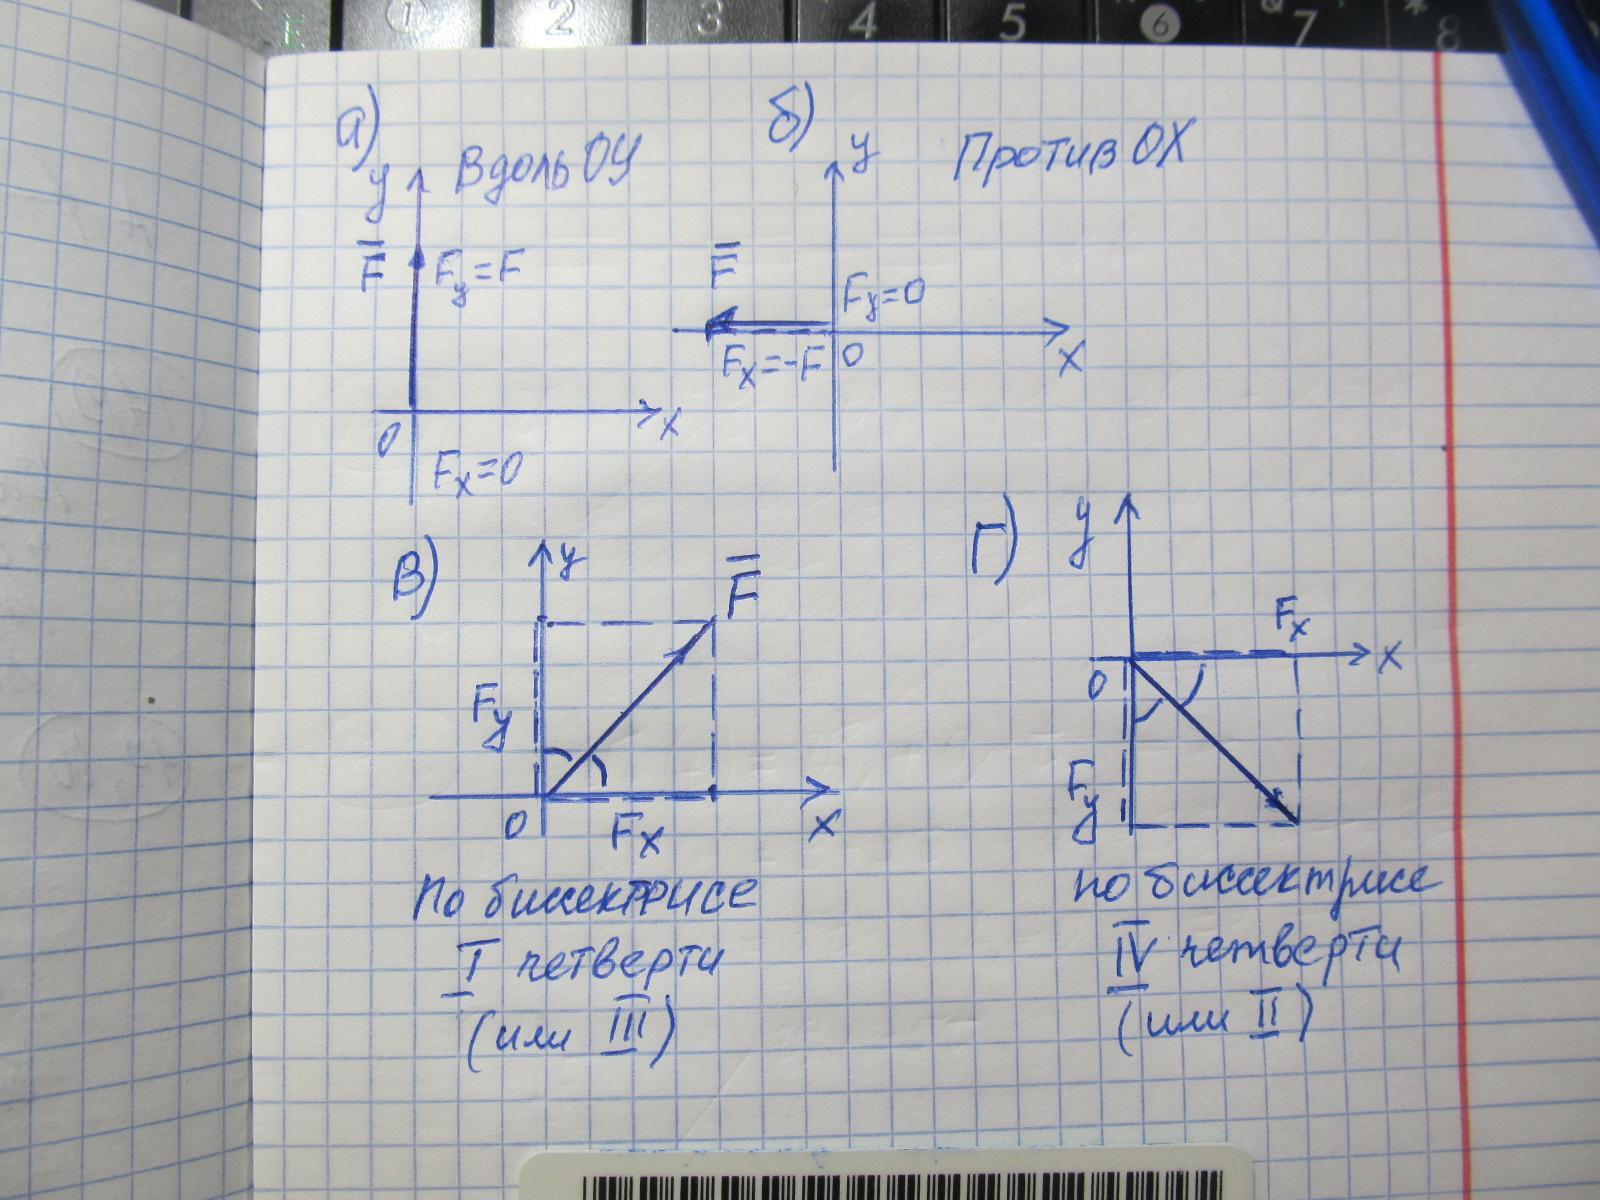 1 2 3 4 5 6 7 8
а)
Вдоль ОУ
у
F̅
Fу=F
0
x
Fx=0
б)
у
Против ОХ
F̅
Fу=0
Fx=-F
0
X
в)
у
F̅
Fу
0
Fx
X
По биссектрисе
I четверти
(или III)
г)
у
Fx
X
0
Fу
по биссектрисе
IV четверти
(или II)